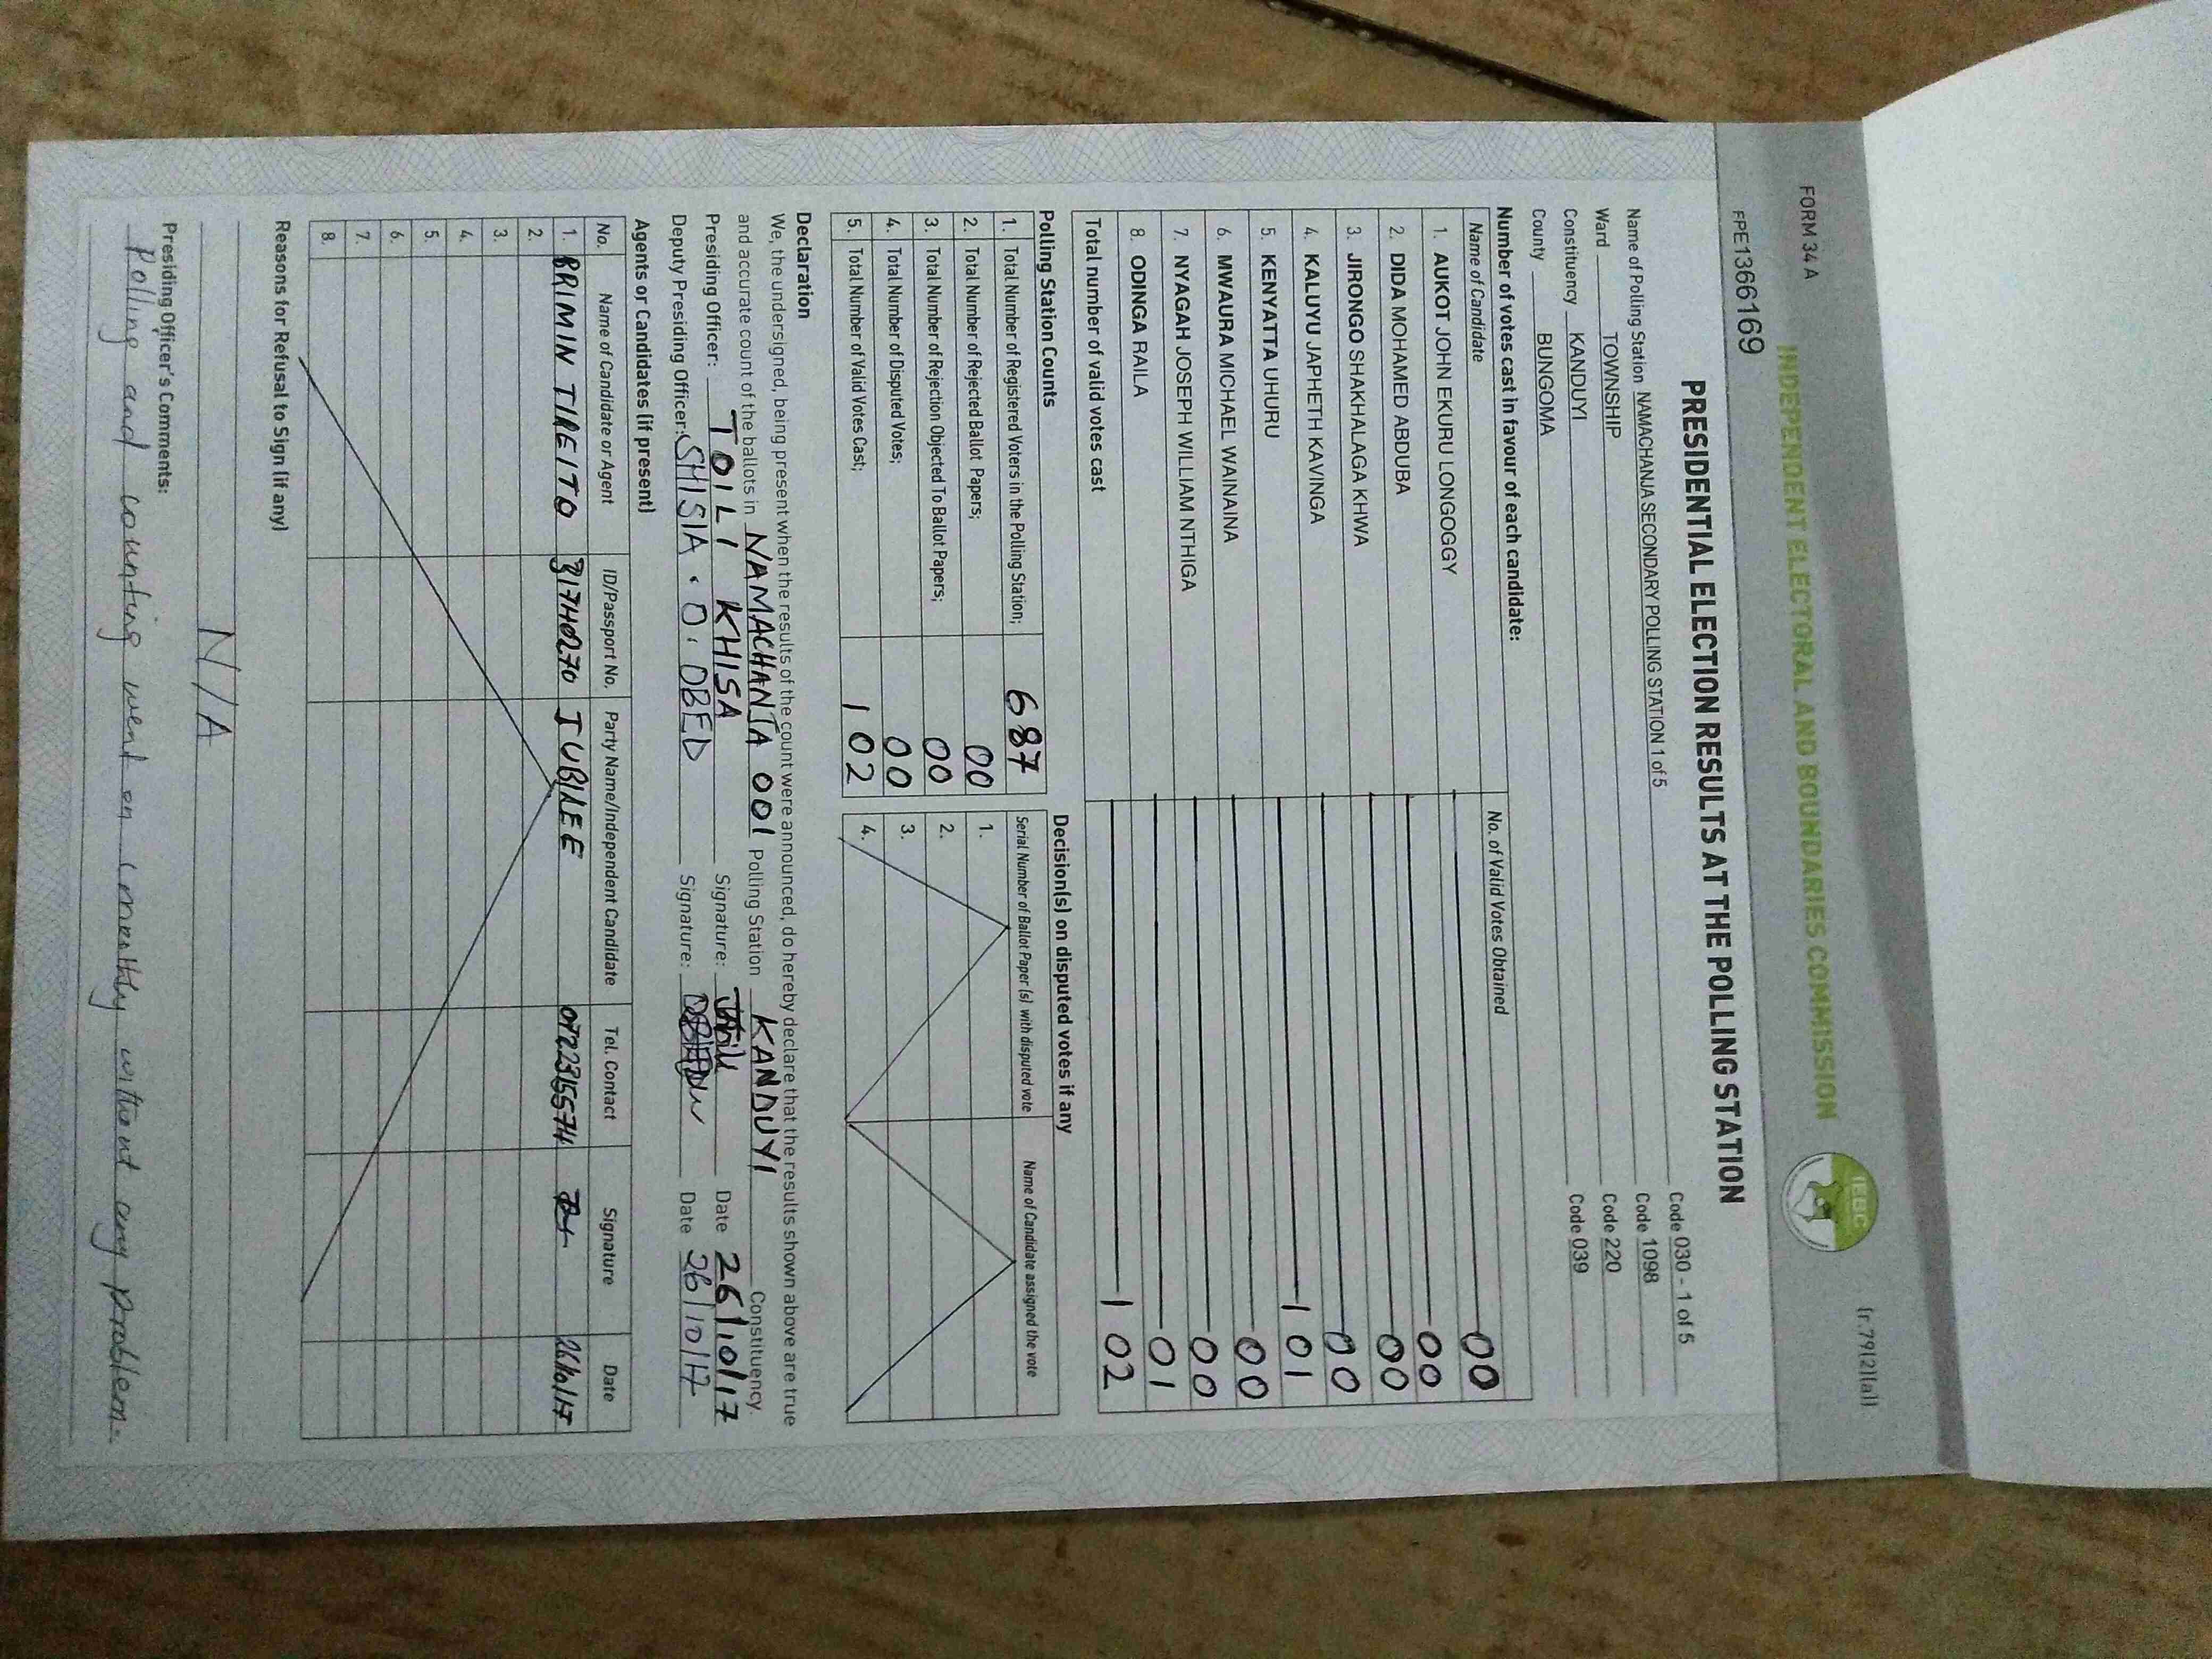 FORM 34 A
(r.79(2)(a))
INDEPENDENT ELECTORAL AND BOUNDARIES COMMISSION
IEBC
FPE1366169
PRESIDENTIAL ELECTION RESULTS AT THE POLLING STATION
Name of Polling Station NAMACHANJA SECONDARY POLLING STATION 1 of 5 Code 030 - 1 of 5
Ward TOWNSHIP Code 1098
Constituency KANDUYI Code 220
County BUNGOMA Code 039
Number of votes cast in favour of each candidate:
Name of Candidate No. of Valid Votes Obtained
1. AUKOT JOHN EKURU LONGOGGY 00
2. DIDA MOHAMED ABDUBA 00
3. JIRONGO SHAKHALAGA KHWA 00
4. KALUYU JAPHETH KAVINGA 00
5. KENYATTA UHURU 101
6. MWAURA MICHAEL WAINAINA 00
7. NYAGAH JOSEPH WILLIAM NTHIGA 00
8. ODINGA RAILA 01
Total number of valid votes cast 102
Polling Station Counts
1. Total Number of Registered Voters in the Polling Station; 687
2. Total Number of Rejected Ballot Papers; 00
3. Total Number of Rejection Objected To Ballot Papers; 00
4. Total Number of Disputed Votes; 00
5. Total Number of Valid Votes Cast; 102
Decision(s) on disputed votes if any
Serial Number of Ballot Paper (s) with disputed vote Name of Candidate assigned the vote
1.
2.
3.
4.
Declaration
We, the undersigned, being present when the results of the count were announced, do hereby declare that the results shown above are true
and accurate count of the ballots in NAMACHANJA 001 Polling Station KANDUYI Constituency.
Presiding Officer: TOILI KHISA Signature: Date 26/10/17
Deputy Presiding Officer: SHISIA . O. OBED Signature: Date 26/10/17
Agents or Candidates (if present)
No. Name of Candidate or Agent ID/Passport No. Party Name/Independent Candidate Tel. Contact Signature Date
1. BRIMIN TIREITO JUBILEE 0722315574 26/10/17
2.
3.
4.
5.
6.
7.
8.
Reasons for Refusal to Sign (if any)
N/A
Presiding Officer's Comments:
Polling and counting went on smoothly without any problem.